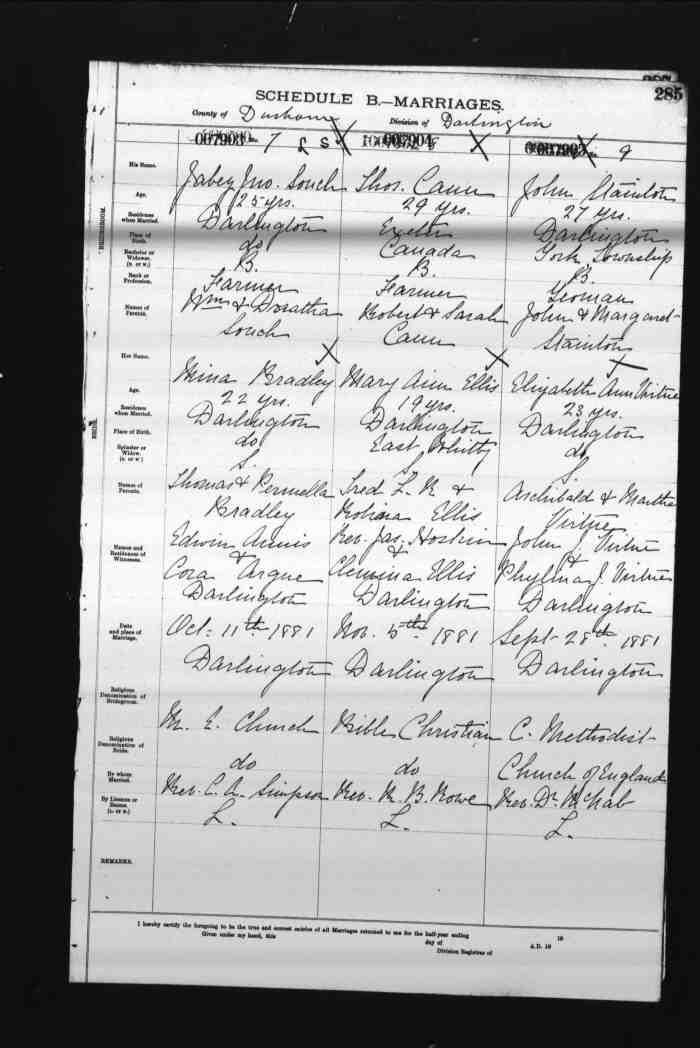 285
SCHEDULE B.—MARRIAGES.
County of Durham Division of Darlington
007903 7 007904 9
His Name. Jabez Jno. Souch Thos. Cann John Stainton
Age. 25 yrs. 29 yrs. 27 yrs.
Residence when Married. Darlington Exeter Darlington
Place of Birth. do Canada York Township
Bachelor or Widower. (B. or W.) B. B. B.
Rank or Profession. Farmer Farmer Yeoman
Names of Parents. Wm & Doratha Robert & Sarah John & Margaret
Souch Cann Stainton
BRIDEGROOM.
Her Name. Mina Bradley Mary Ann Ellis Elizabeth Ann Virtue
Age. 22 yrs. 19 yrs. 23 yrs.
Residence when Married. Darlington Darlington Darlington
Place of Birth. do East Whitby do
Spinster or Widow. (S. or W.) S. S. S.
Names of Parents. Thomas & Permella Fred L. R & Archibald & Martha
Bradley Ellis Virtue
BRIDE.
Names and Residences of Witnesses. Edwin Annis Rev. Jas. Hoskin John J. Virtue
& & &
Cora Argue Clemina Ellis J. Virtue
Darlington Darlington Darlington
Date and place of Marriage. Oct. 11th 1881 Nov. 5th 1881 Sept 28th 1881
Darlington Darlington Darlington
Religious Denomination of Bridegroom. M. E. Church Bible Christian C. Methodist
Religious Denomination of Bride. do do Church of England
By whom Married. Rev. C. A. Simpson Rev. R. B. Rowe Rev. Dr. McNab
By License or Banns. (L. or B.) L. L. L.
REMARKS.
I hereby certify the foregoing to be the true and correct entries of all Marriages returned to me for the half-year ending 18
Given under my hand, this day of A.D. 18
Division Registrar of